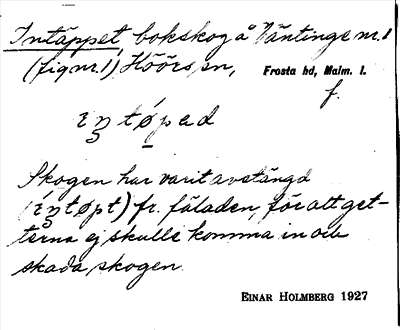 Intäppet, bokskog å Väntinge nr. 1
(fig nr. 1), Höörs sn, Frosta hd, Malm. l.
f.
iŋtøped
Skogen har varit avstängd
(iŋtøpt) fr. fäladen, för att get-
terna ej skulle komma in och
skada skogen.
EINAR HOLMBERG 1927